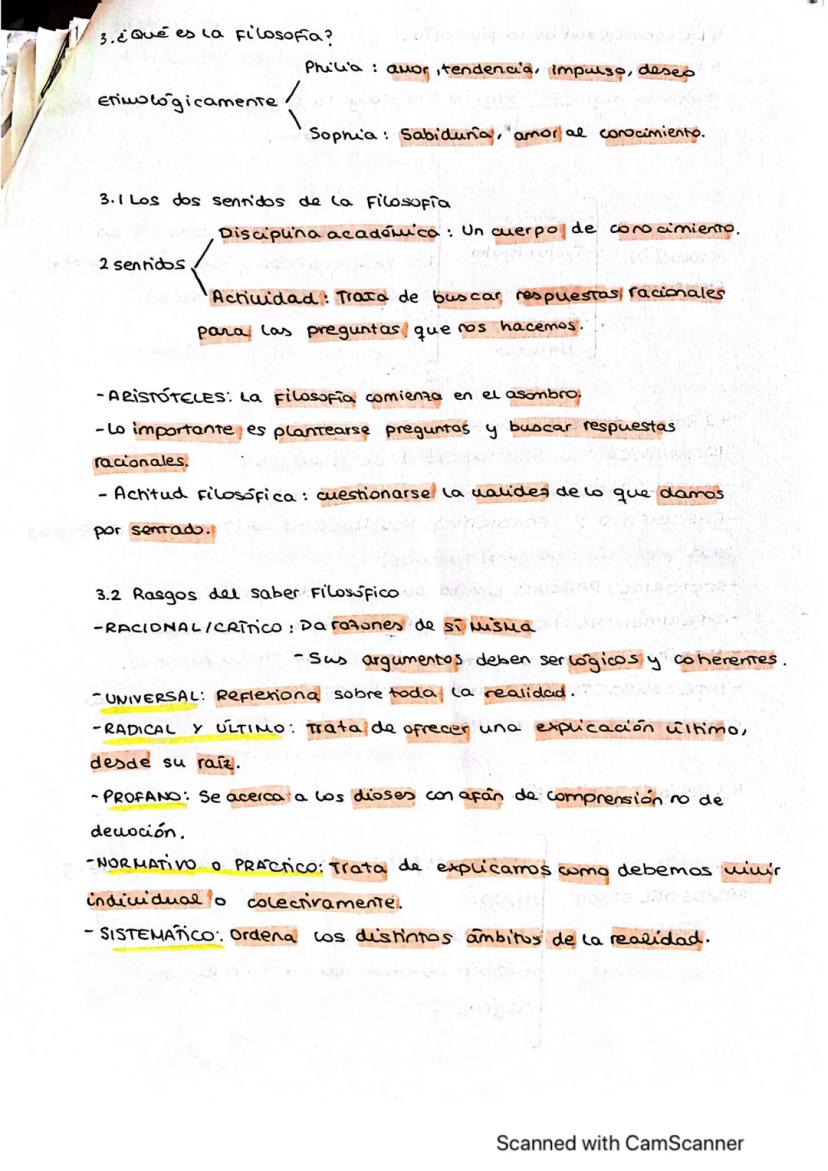 3. ¿Qué es la Filosofía?
Philia : amor, tendencia, impulso, deseo
Etimológicamente
Sophia : Sabiduría, amor al conocimiento.
3.1 Los dos sentidos de la Filosofía
Disciplina académica : Un cuerpo de conocimiento.
2 sentidos
Actividad : Trata de buscar respuestas racionales
para las preguntas que nos hacemos.
- ARISTÓTELES: La Filosofía comienza en el asombro.
- Lo importante es plantearse preguntas y buscar respuestas
racionales.
- Actitud Filosófica : cuestionarse la validez de lo que damos
por sentado.
3.2 Rasgos del saber Filosófico
- RACIONAL/CRÍTICO : Da razones de sí misma
- Sus argumentos deben ser lógicos y coherentes.
- UNIVERSAL: Reflexiona sobre toda la realidad.
- RADICAL Y ÚLTIMO: Trata de ofrecer una explicación última,
desde su raíz.
- PROFANO: Se acerca a los dioses con afán de comprensión no de
devoción.
- NORMATIVO O PRÁCTICO: Trata de explicarnos como debemos vivir
individual o colectivamente.
- SISTEMÁTICO: Ordena los distintos ámbitos de la realidad.
Scanned with CamScanner